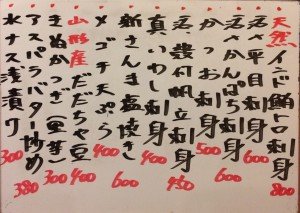 天然インド鮪トロ刺身 800
活〆平目刺身 600
活〆かんぱち刺身 600
かつお刺身 500
活殻付帆立刺身 450
真いわし刺身 400
新さんま塩焼き 600
メゴチ天ぷら
山形産だだちゃ豆 400
きぬかつぎ(里芋) 300
アスパラバター炒め 380
水ナス浅漬け 300